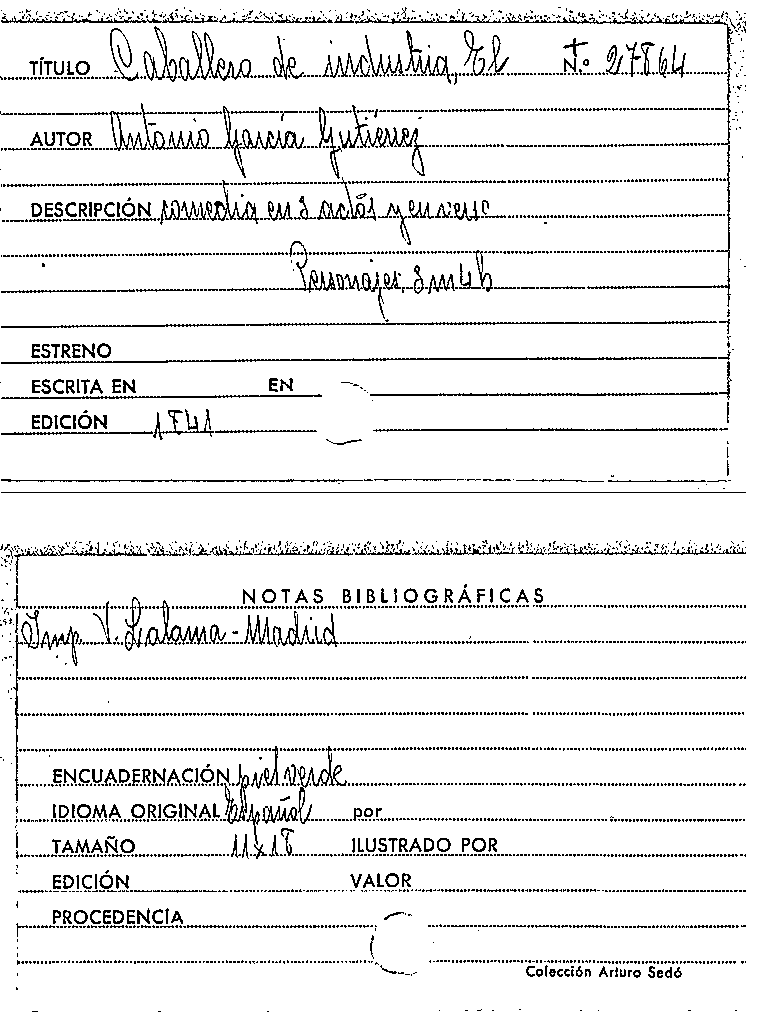 TÍTULO Caballero de industria, El N.º 27864
AUTOR Antonio García Gutiérrez
DESCRIPCIÓN comedia en 3 actos y en verso
Personajes, 3m4h
ESTRENO
ESCRITA EN EN
EDICIÓN 1841
NOTAS BIBLIOGRÁFICAS
Imp. V. Lalama - Madrid
ENCUADERNACIÓN piel verde
IDIOMA ORIGINAL Español por
TAMAÑO 11x18 ILUSTRADO POR
EDICIÓN VALOR
PROCEDENCIA
Colección Arturo Sedó